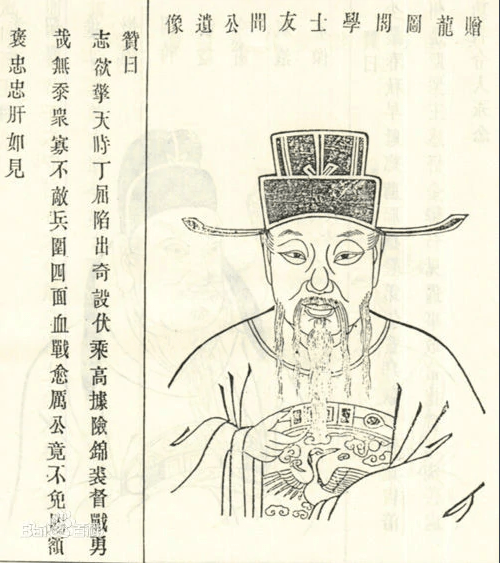 贈龍圖閣學士友聞公遺像
贊曰
志欲擎天時丁屈陷出奇設伏乘高據險錦裘督戰勇
哉無忝衆寡不敵兵圍四面血戰愈厲公竟不免額
褒忠忠肝如見